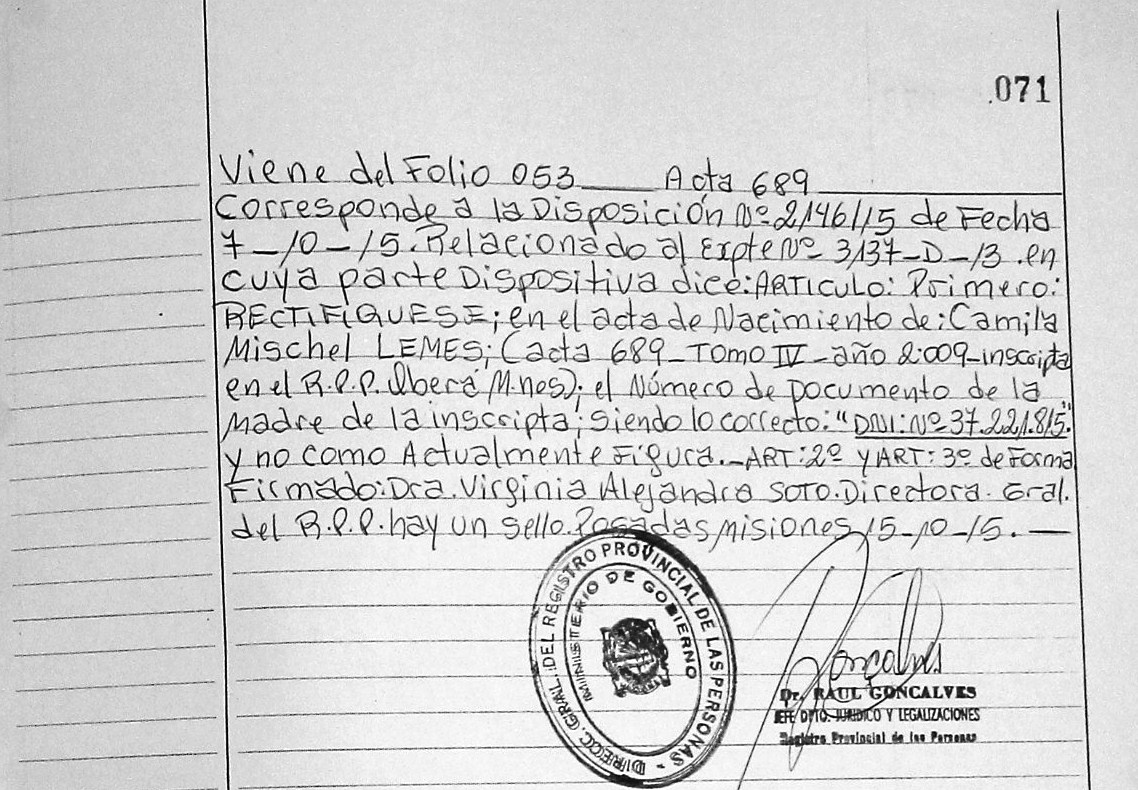 .071
Viene del Folio 053 ___ Acta 689
Corresponde a la Disposición Nº 2146/15 de Fecha
7-10-15. Relacionado al Expte Nº 3137-D-13. en
cuya parte Dispositiva dice: ARTICULO: Primero:
RECTIFIQUESE; en el acta de Nacimiento de: Camila
Mischel LEMES; (acta 689_TOMO IV_año 2.009-inscripta
en el R.P.P. Iberá M.nes); el Número de Documento de la
Madre de la inscripta; siendo lo correcto: "DNI: Nº 37.221.815."
y no como Actualmente Figura._ART: 2º y ART: 3º de Forma
Firmado: Dra. Virginia Alejandra SOTO. Directora. Gral.
del R.P.P. hay un sello. Posadas, Misiones, 15-10-15. —
DIRECC. GRAL. DEL REGISTRO PROVINCIAL DE LAS PERSONAS -
MINISTERIO DE GOBIERNO
Goncalves
Dr. RAUL GONCALVES
JEFE DPTO. JURIDICO Y LEGALIZACIONES
Registro Provincial de las Personas